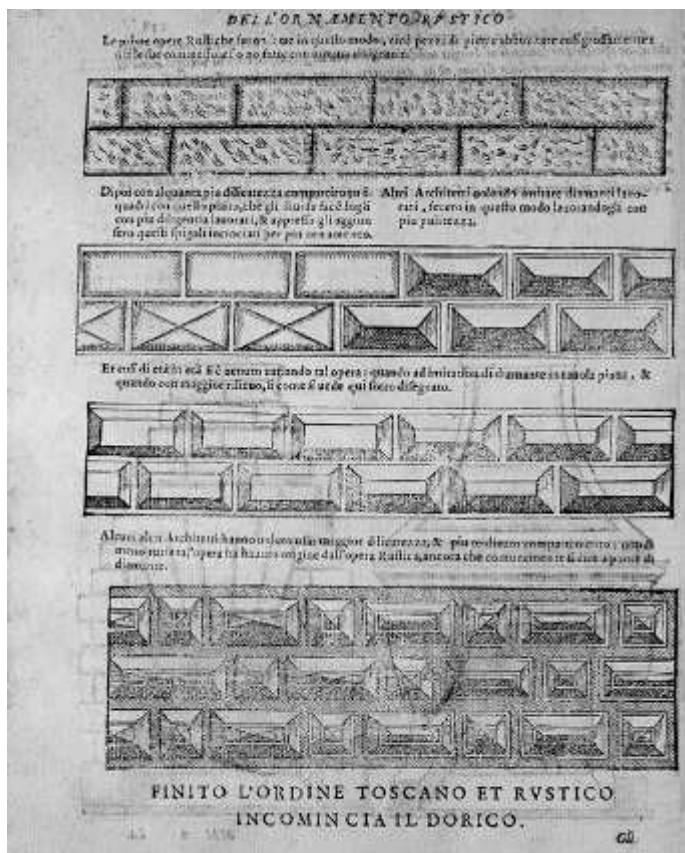 DELL'ORNAMENTO RVSTICO
Le prime opere Rustiche furon fatte in questo modo, cioè pezzi di pietra abbozzate così grossamente:
ma le sue commissure sono fatte con somma diligentia.
Dipoi con alquanta più delicatezza compartirono i
quadri con questo piano, che gli
con più diligentia lavorati, & appresso gli aggiun
sero questi spigoli incrociati per più ornamento.
Altri Architetti volendo imitare diamanti lavo-
rati, fecero in questo modo lavorandogli con
più pulitezza.
Et così di età in età si è venuto variando tal opera: quando ad imitatione di diamante in tavola piana, &
quando con maggior rilievo, sì come si vede qui sotto disegnato.
Alcuni altri Architetti hanno voluto usar maggior delicatezza, & più ordinato compartimento:
tal'opera ha havuto origine dall'opera Rustica, ancora che comunemente si dice a ponte di
diamante.
FINITO L'ORDINE TOSCANO ET RVSTICO
INCOMINCIA IL DORICO.